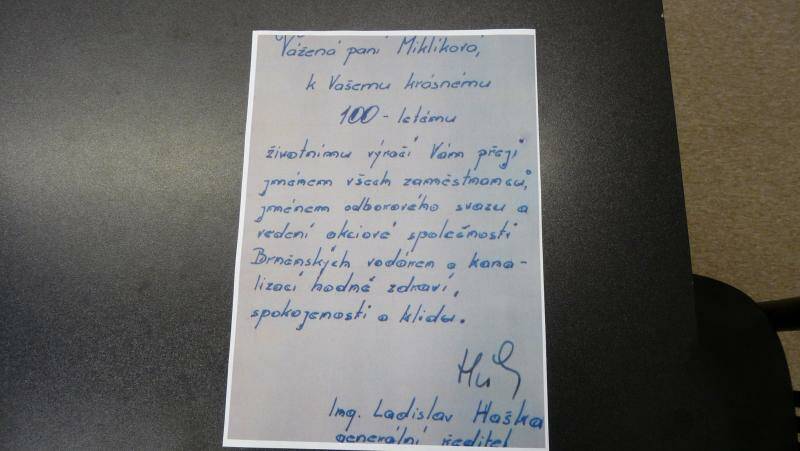 Vážená paní Miklíková,
k Vašemu krásnému
100-letému
životnímu výročí Vám přeji
jménem všech zaměstnanců,
jménem odborového svazu a
vedení akciové společnosti
Brněnských vodáren a kana-
lizací hodně zdraví,
spokojenosti a klidu.
Ing. Ladislav Haška
generální ředitel